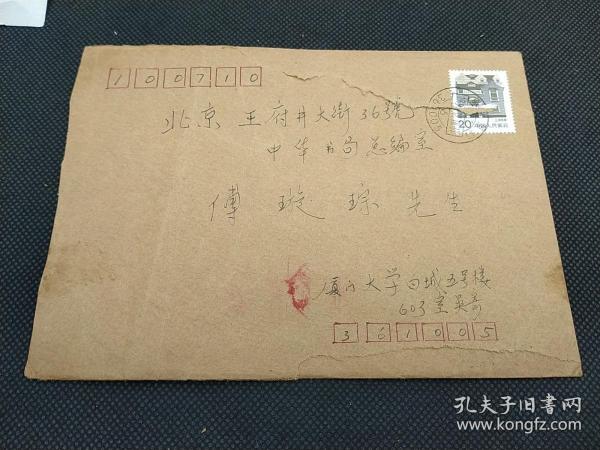 100710
北京王府井大街36號
中华书局总编室
傅璇琮先生
厦门大学白城五号楼
603室吴奇
361005
20
孔夫子旧书网
www.kongfz.com